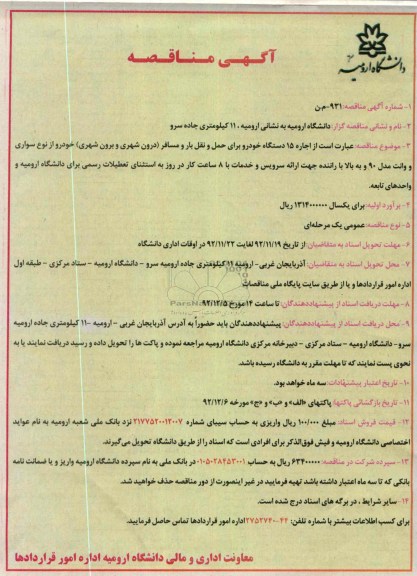 دانشگاه ارومیه
آگهی مناقصه
۱- شماره آگهی مناقصه: ۹۳۱-م-ن
۲- نام و نشانی مناقصه گزار: دانشگاه ارومیه به نشانی ارومیه، ۱۱ کیلومتری جاده سرو
۳- موضوع مناقصه: عبارت است از اجاره ۱۵ دستگاه خودرو برای حمل و نقل بار و مسافر (درون شهری و برون شهری) خودرو از نوع سواری
و وانت مدل ۹۰ و به بالا با راننده جهت ارائه سرویس و خدمات با ۸ ساعت کار در روز به استثنای تعطیلات رسمی برای دانشگاه ارومیه و
واحدهای تابعه.
۴- برآورد اولیه: برای یکسال ۱۳۱۴۰۰۰۰۰۰ ریال
۵- نوع مناقصه: عمومی یک مرحله‌ای
۶- مهلت تحویل اسناد به متقاضیان: از تاریخ ۹۲/۱۱/۱۹ لغایت ۹۲/۱۱/۲۳ در اوقات اداری دانشگاه
۷- محل تحویل اسناد به متقاضیان: آذربایجان غربی- ارومیه ۱۱ کیلومتری جاده ارومیه سرو - دانشگاه ارومیه - ستاد مرکزی - طبقه اول
اداره امور قراردادها و یا از طریق سایت پایگاه ملی مناقصات
۸- مهلت دریافت اسناد از پیشنهاددهندگان: تا ساعت ۱۴ مورخ ۹۲/۱۲/۵
۹- محل دریافت اسناد از پیشنهاددهندگان: پیشنهاددهندگان باید حضوراً به آدرس آذربایجان غربی - ارومیه -۱۱ کیلومتری جاده ارومیه
سرو- دانشگاه ارومیه - ستاد مرکزی - دبیرخانه مرکزی دانشگاه ارومیه مراجعه نموده و پاکت ها را تحویل داده و رسید دریافت نمایند یا به
نحوی پست نمایند که تا مهلت مقرر به دانشگاه رسیده باشد.
۱۰- تاریخ اعتبار پیشنهادات: سه ماه خواهد بود.
۱۱- تاریخ بازگشائی پاکتها: پاکتهای «الف» و «ب» و «ج» مورخه ۹۲/۱۲/۶
۱۲- قیمت فروش اسناد: مبلغ ۱۰۰/۰۰۰ ریال واریزی به حساب سیبای شماره ۲۱۷۷۵۲۰۰۱۲۰۰۷ نزد بانک ملی شعبه ارومیه به نام عواید
اختصاصی دانشگاه ارومیه و فیش فوق‌الذکر برای افرادی است که اسناد را از طریق دانشگاه تحویل می‌گیرند.
۱۳- سپرده شرکت در مناقصه: ۶۳۴۰۰۰۰۰ ریال به حساب ۰۱۰۵۰۲۸۴۵۳۰۰۱ در بانک ملی به نام سپرده دانشگاه ارومیه واریز و یا ضمانت نامه
بانکی که تا سه ماه اعتبار داشته باشد تهیه فرمایید در غیر اینصورت از دور مناقصه حذف خواهید شد.
۱۴- سایر شرایط، در برگه های اسناد درج شده است.
برای کسب اطلاعات بیشتر با شماره تلفن: ۴۲-۲۷۵۲۷۴۰ اداره امور قراردادها تماس حاصل فرمایید.
معاونت اداری و مالی دانشگاه ارومیه اداره امور قراردادها